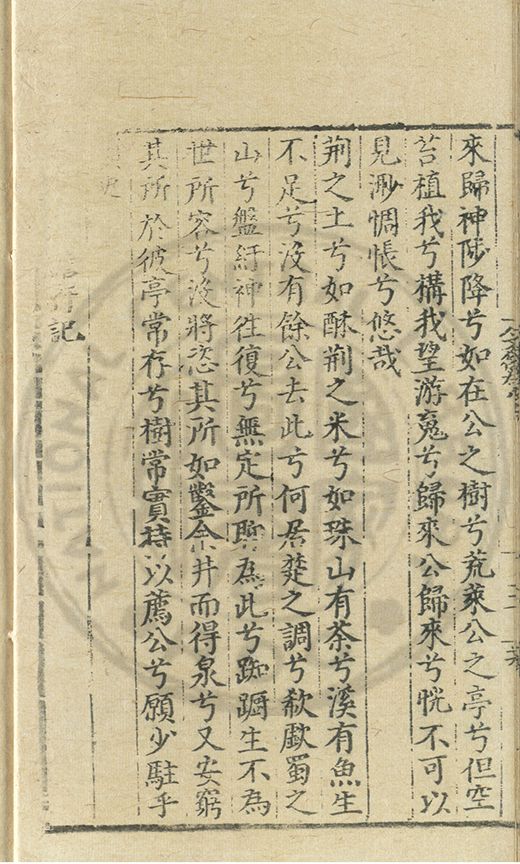 來歸神陟降兮如在公之樹兮荒萊公之亭兮但空
苔植我兮構我望游䰟兮歸來公歸來兮恍不可以
見渺惆悵兮悠哉
荊之土兮如酥荊之米兮如珠山有茶兮溪有魚生
不足兮沒有餘公去此兮何居楚之調兮欷歔蜀之
山兮盤紆神往復兮無定所聊為此兮踟躕生不為
世所容兮沒將恣其所如鑿井而得泉兮又安窮
其所於彼亭常存兮樹常實持以薦公兮願少駐乎
須臾
亭記